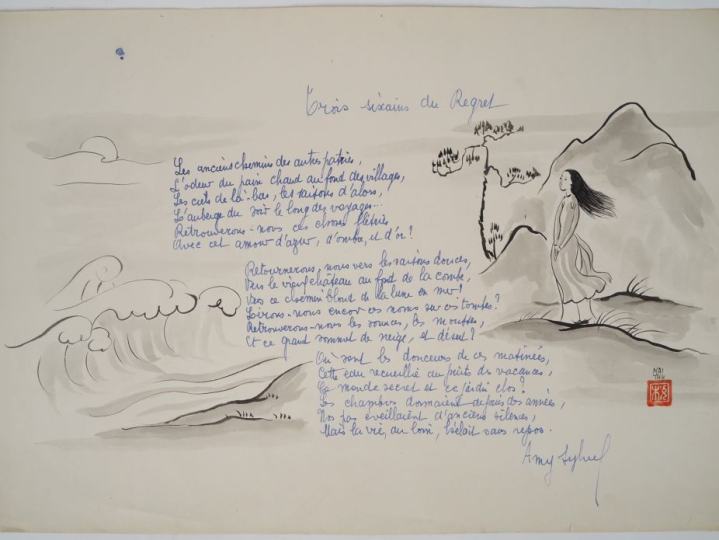 Trois sixains du Regret
Les anciens chemins des autres patries,
L'odeur du pain chaud au fond des villages,
Les ciels de là-bas, les saisons d'alors,
L'auberge du soir le long des voyages...
Retrouverons-nous ces choses flétries
Avec cet amour d'azur, d'ombre, et d'or?
Retournerons-nous vers les saisons douces,
Vers le vieux château au fond de la combe,
Vers ce chemin blond de la lune en mer!
Lirons-nous encor ces noms sur ces tombes?
Retrouverons-nous les sources, les mousses,
Et ce grand sommet de neige, et désert?
Où sont les douceurs de ces matinées,
Cette eau recueillie au puits des vacances,
Ce monde secret et ce jardin clos?
Les chambres dormaient depuis des années,
Nos pas éveillaient d'anciens silences,
Mais la vie, au loin, sans repos.
Amy Sylvel